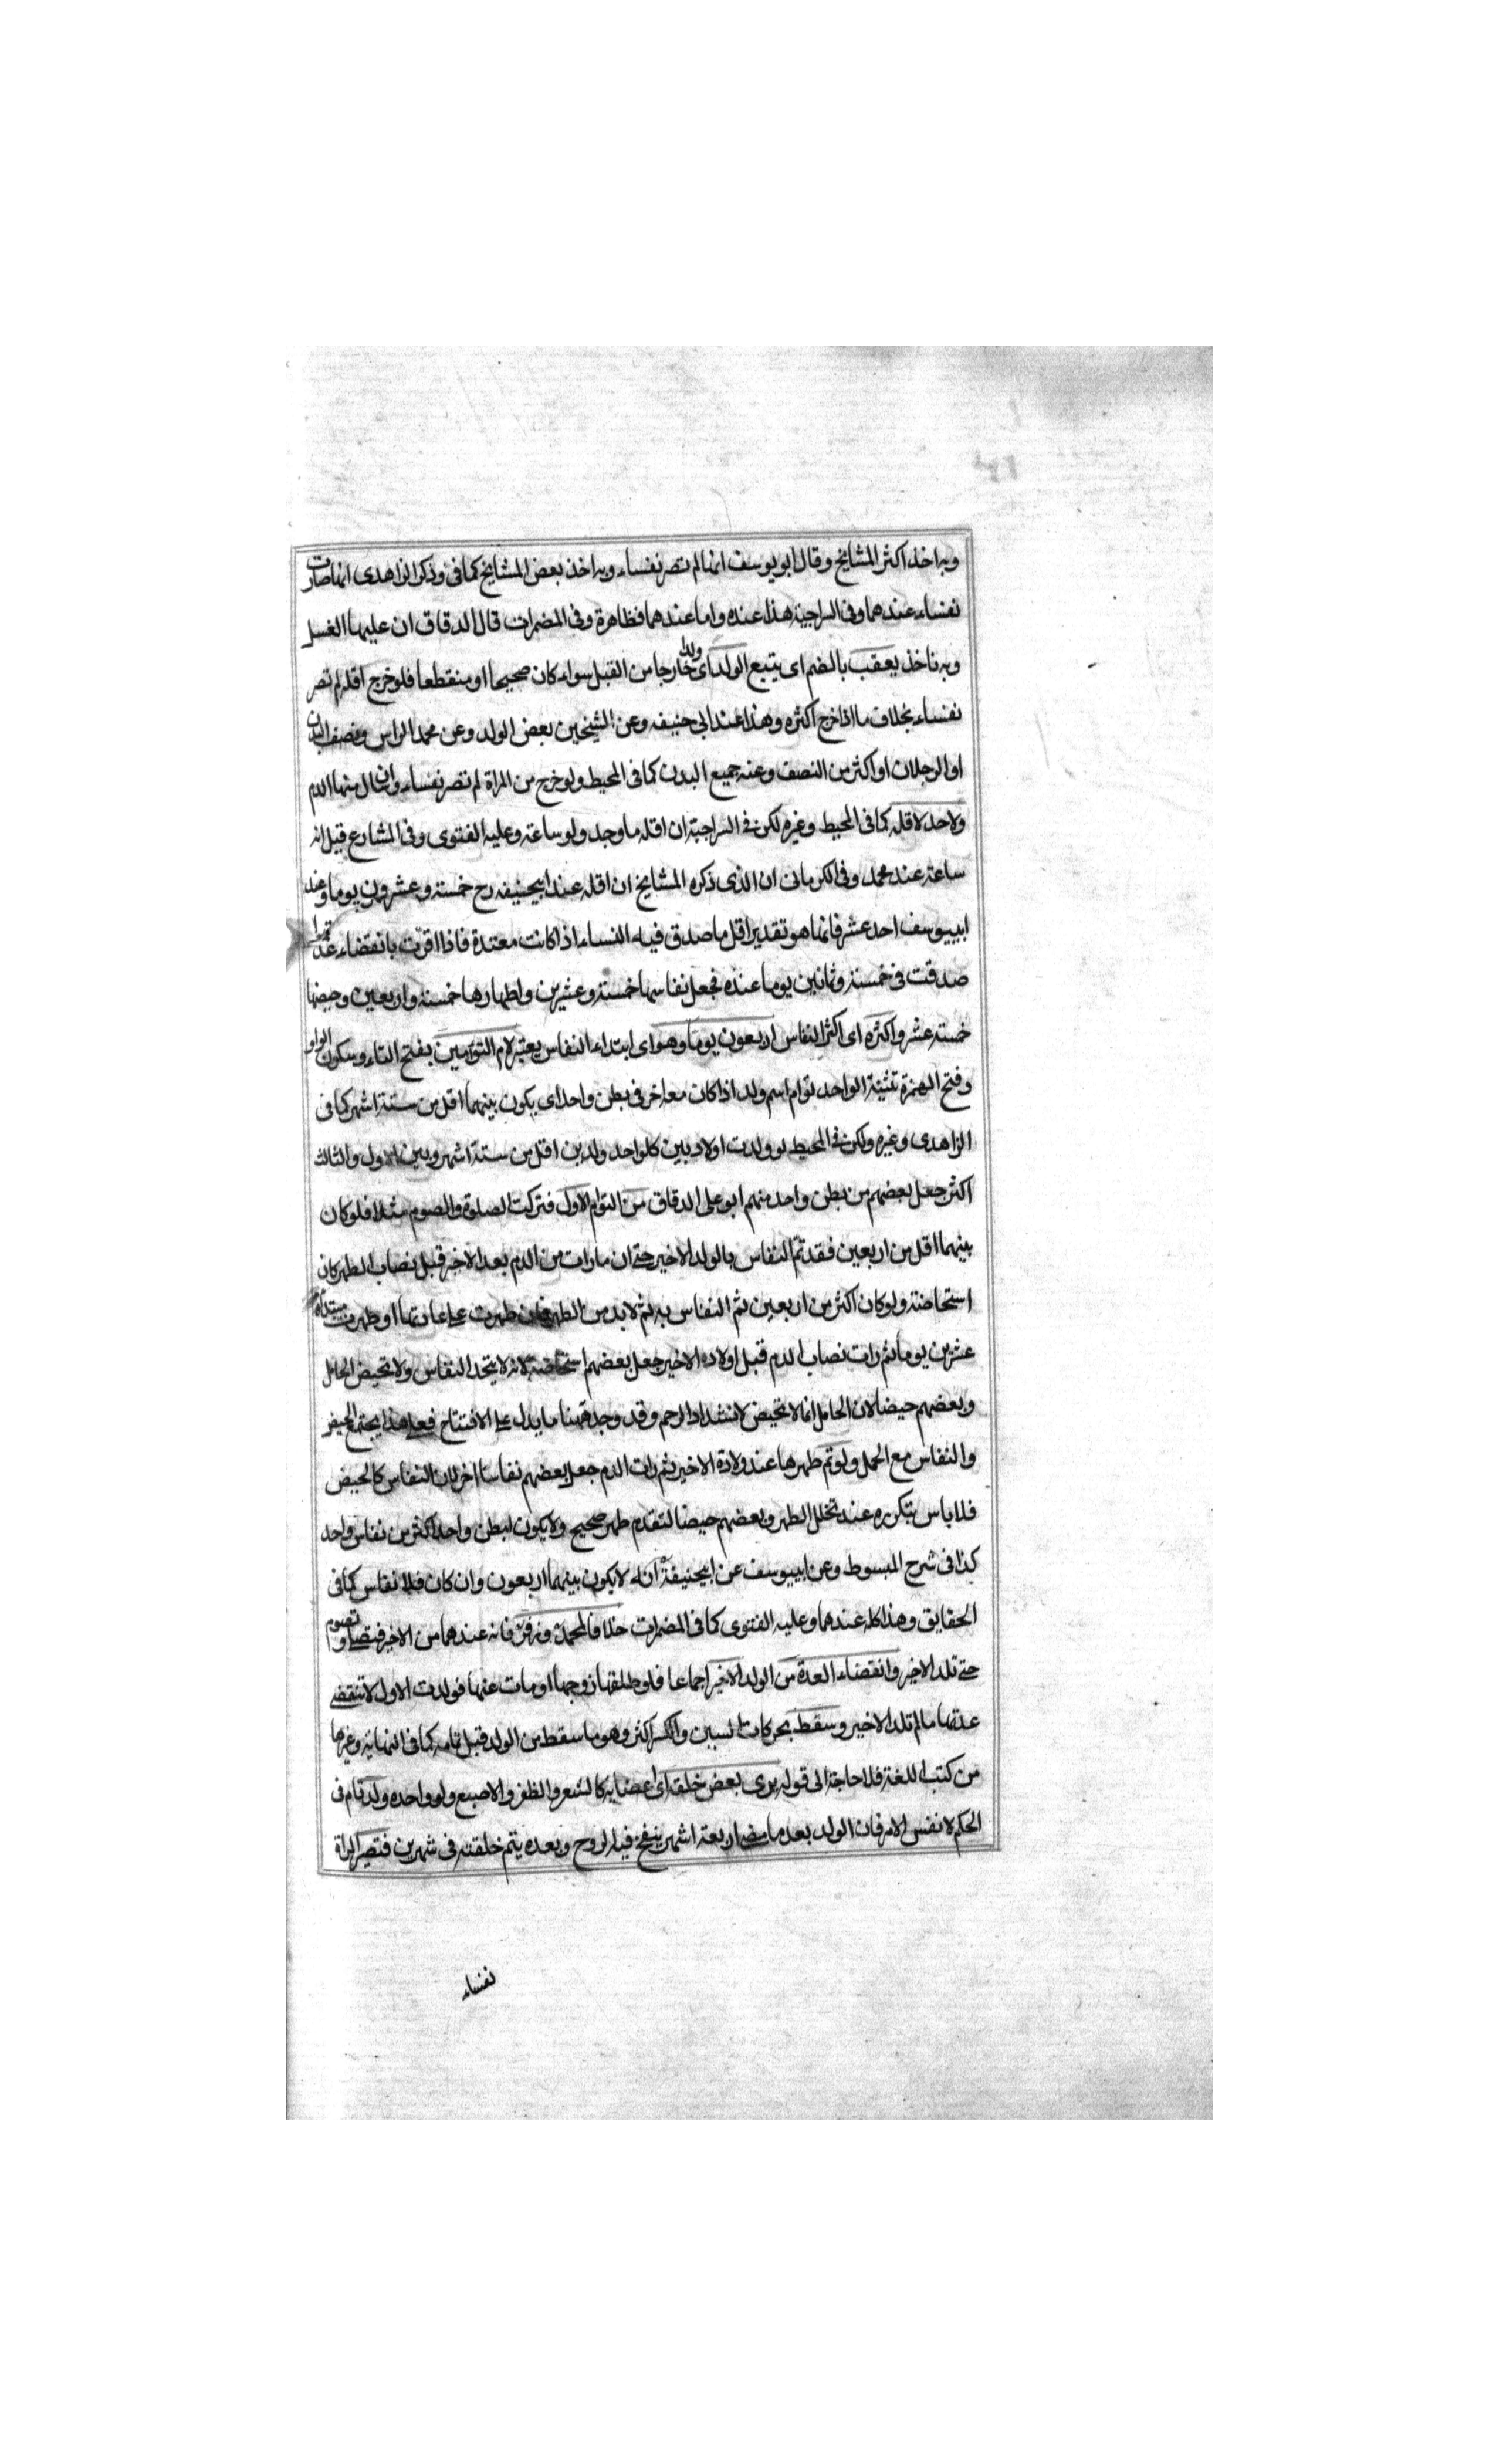 وبه اخذ اكثر المشايخ وقال ابو يوسف انها لم تصر نفساء وبه اخذ بعض المشايخ كما فى وذكر الزاهدى انها صارت
نفساء عندهما وفى السراجية هذا عنده واما عندهما فظاهرة وفى المضمرات قال الدقاق ان عليها الغسل
وبه ناخذ يعقب بالضم اى يتبع الولد اى ولدا خارجا من القبل سواء كان صحيحا او منقطعا فلو خرج اقله لم تصر
نفساء بخلاف ما اذا خرج اكثره وهذا عند ابى حنيفه وعن الشيخين بعض الولد وعن محمد الراس ونصف البدن
او الرجلان او اكثر من النصف وعنه جميع البدن كما فى المحيط ولو خرج من المراة لم تصر نفساء وان سال منها الدم
ولا حد لاقله كما فى المحيط وغيره لكن فى السراجية ان اقله ما وجد ولو ساعة وعليه الفتوى وفى المشارع قيل انه
ساعة عند محمد وفى الكرمانى ان الذى ذكره المشايخ ان اقله عند ابيحنيفه رح خمسة وعشرون يوما وعند
ابييوسف احد عشر فانما هو تقدير اقل ما صدق فيه النساء اذا كانت معتدة فاذا اقرت بانقضاء عدتها
صدقت فى خمسة وثمانين يوما عنده فجعل نفاسها خمسة وعشرين واطهارها خمسة واربعين وحيضها
خمسة عشر واكثره اى اكثر النفاس اربعون يوما وهو اى ابتداء النفاس يعتبر لام التوامين بفتح التاء وسكون الواو
وفتح الهمزة تثنية الواحد توام اسم ولد اذا كان معه اخر فى بطن واحد اى يكون بينهما اقل من ستة اشهر كما فى
الزاهدى وغيره ولكن فى المحيط لو ولدت اولاد بين كل واحد ولدين اقل من ستة اشهر وبين الاول والثالث
اكثر جعل بعضهم من بطن واحد منهم ابو على الدقاق من التوام الاول فتركت الصلوة والصوم مثلا فلو كان
بينهما اقل من اربعين فقد تم النفاس بالولد الاخير حتى ان ما رات من الدم بعد الاخر قبل نصاب الطهر كان
استحاضة ولو كان اكثر من اربعين ثم النفاس به ثم لا بد من الطهر فان طهرت على عادتها او طهرت مبتداة
عشرين يوما ثم رات نصاب الدم قبل اولاده الاخير جعل بعضهم استحاضة لانه لا يتحد النفاس ولا تحيض الحامل
وبعضهم حيضا لان الحامل انما لا تحيض لانشداد الرحم وقد وجد ههنا ما يدل على الافتتاح فعلى هذا يجتمع الحيض
والنفاس مع الحمل ولو تم طهرها عند ولادة الاخير ثم رات الدم جعل بعضهم نفاسا اخر لان النفاس كالحيض
فلا باس بتكرره عند تخلل الطهر وبعضهم حيضا لتقدم طهر صحيح ولا يكون لبطن واحد اكثر من نفاس واحد
كذا فى شرح المبسوط وعن ابييوسف عن ابيحنيفة انه لا يكون بينهما اربعون وان كان فلا نفاس كما فى
الحقايق وهذا كله عندهما وعليه الفتوى كما فى المضمرات خلافا لمحمد وزفر فانه عندهما من الاخير فتصلى وتصوم
حتى تلد الاخير وانقضاء العدة من الولد الاخير اجماعا فلو طلقها زوجها او مات عنها فولدت الاول لا تنقضى
عدتها ما لم تلد الاخير وسقط بحركات السين والكسر اكثر وهو ما سقط من الولد قبل تمامه كما فى النهاية وغيرها
من كتب اللغة فلا حاجة الى قوله يرى بعض خلقه اى اعضايه كالشعر والظفر والاصبع ولو واحده ولد تام فى
الحكم لا نفس الامر فان الولد بعد ما مضى اربعة اشهر ينفخ فيه الروح وبعده يتم خلقته فى شهرين فتصير المراة
نفساء